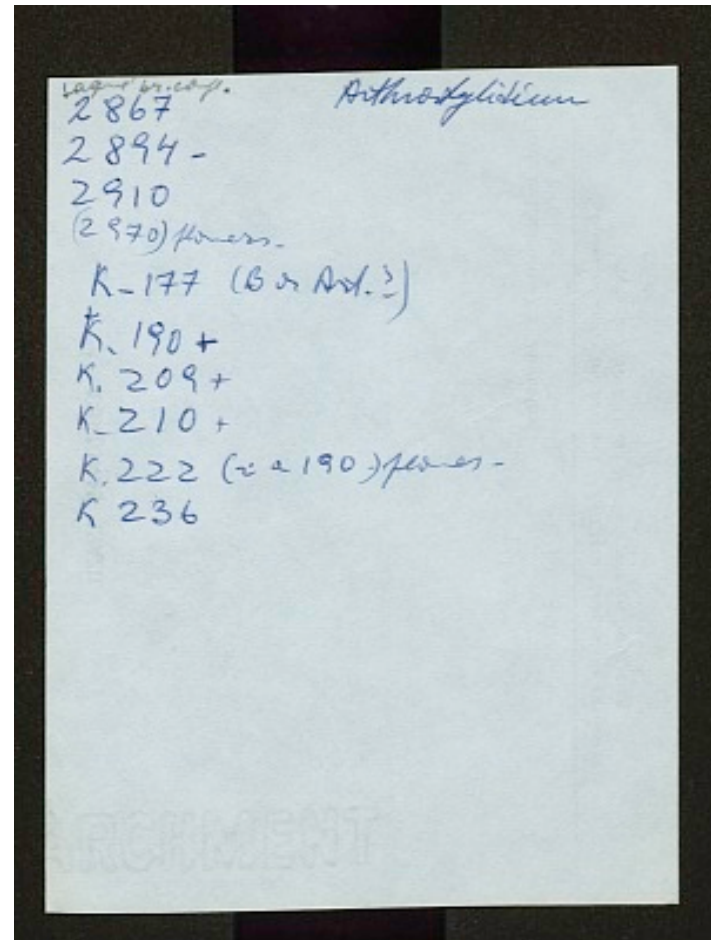 Arthrostylidium
2867
2894 -
2910
(2970) flowers -
K - 177 (B or Art. ?)
K. 190 +
K. 209 +
K - 210 +
K. 222 (190) flowers -
K 236
PARCHMENT